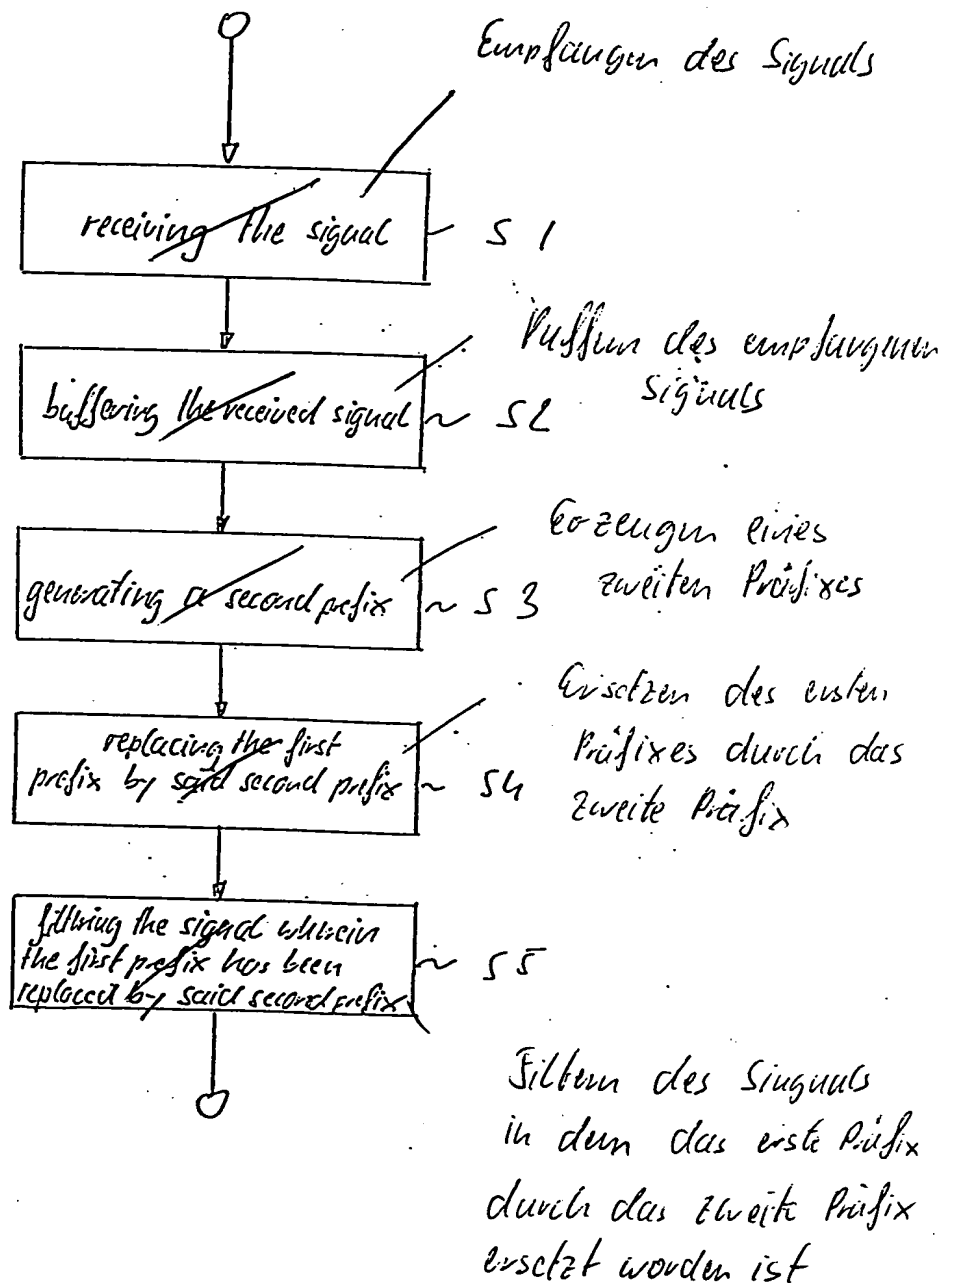 Empfangen des Signals
receiving the signal
S1
Puffern des empfangenen
Signals
buffering the received signal
S2
Erzeugen eines
zweiten Präfixes
generating a second prefix
S3
Ersetzen des ersten
Präfixes durch das
zweite Präfix
replacing the first
prefix by said second prefix
S4
filtering the signal wherein
the first prefix has been
replaced by said second prefix
S5
Filtern des Siugnals
in dem das erste Präfix
durch das zweite Präfix
ersetzt worden ist